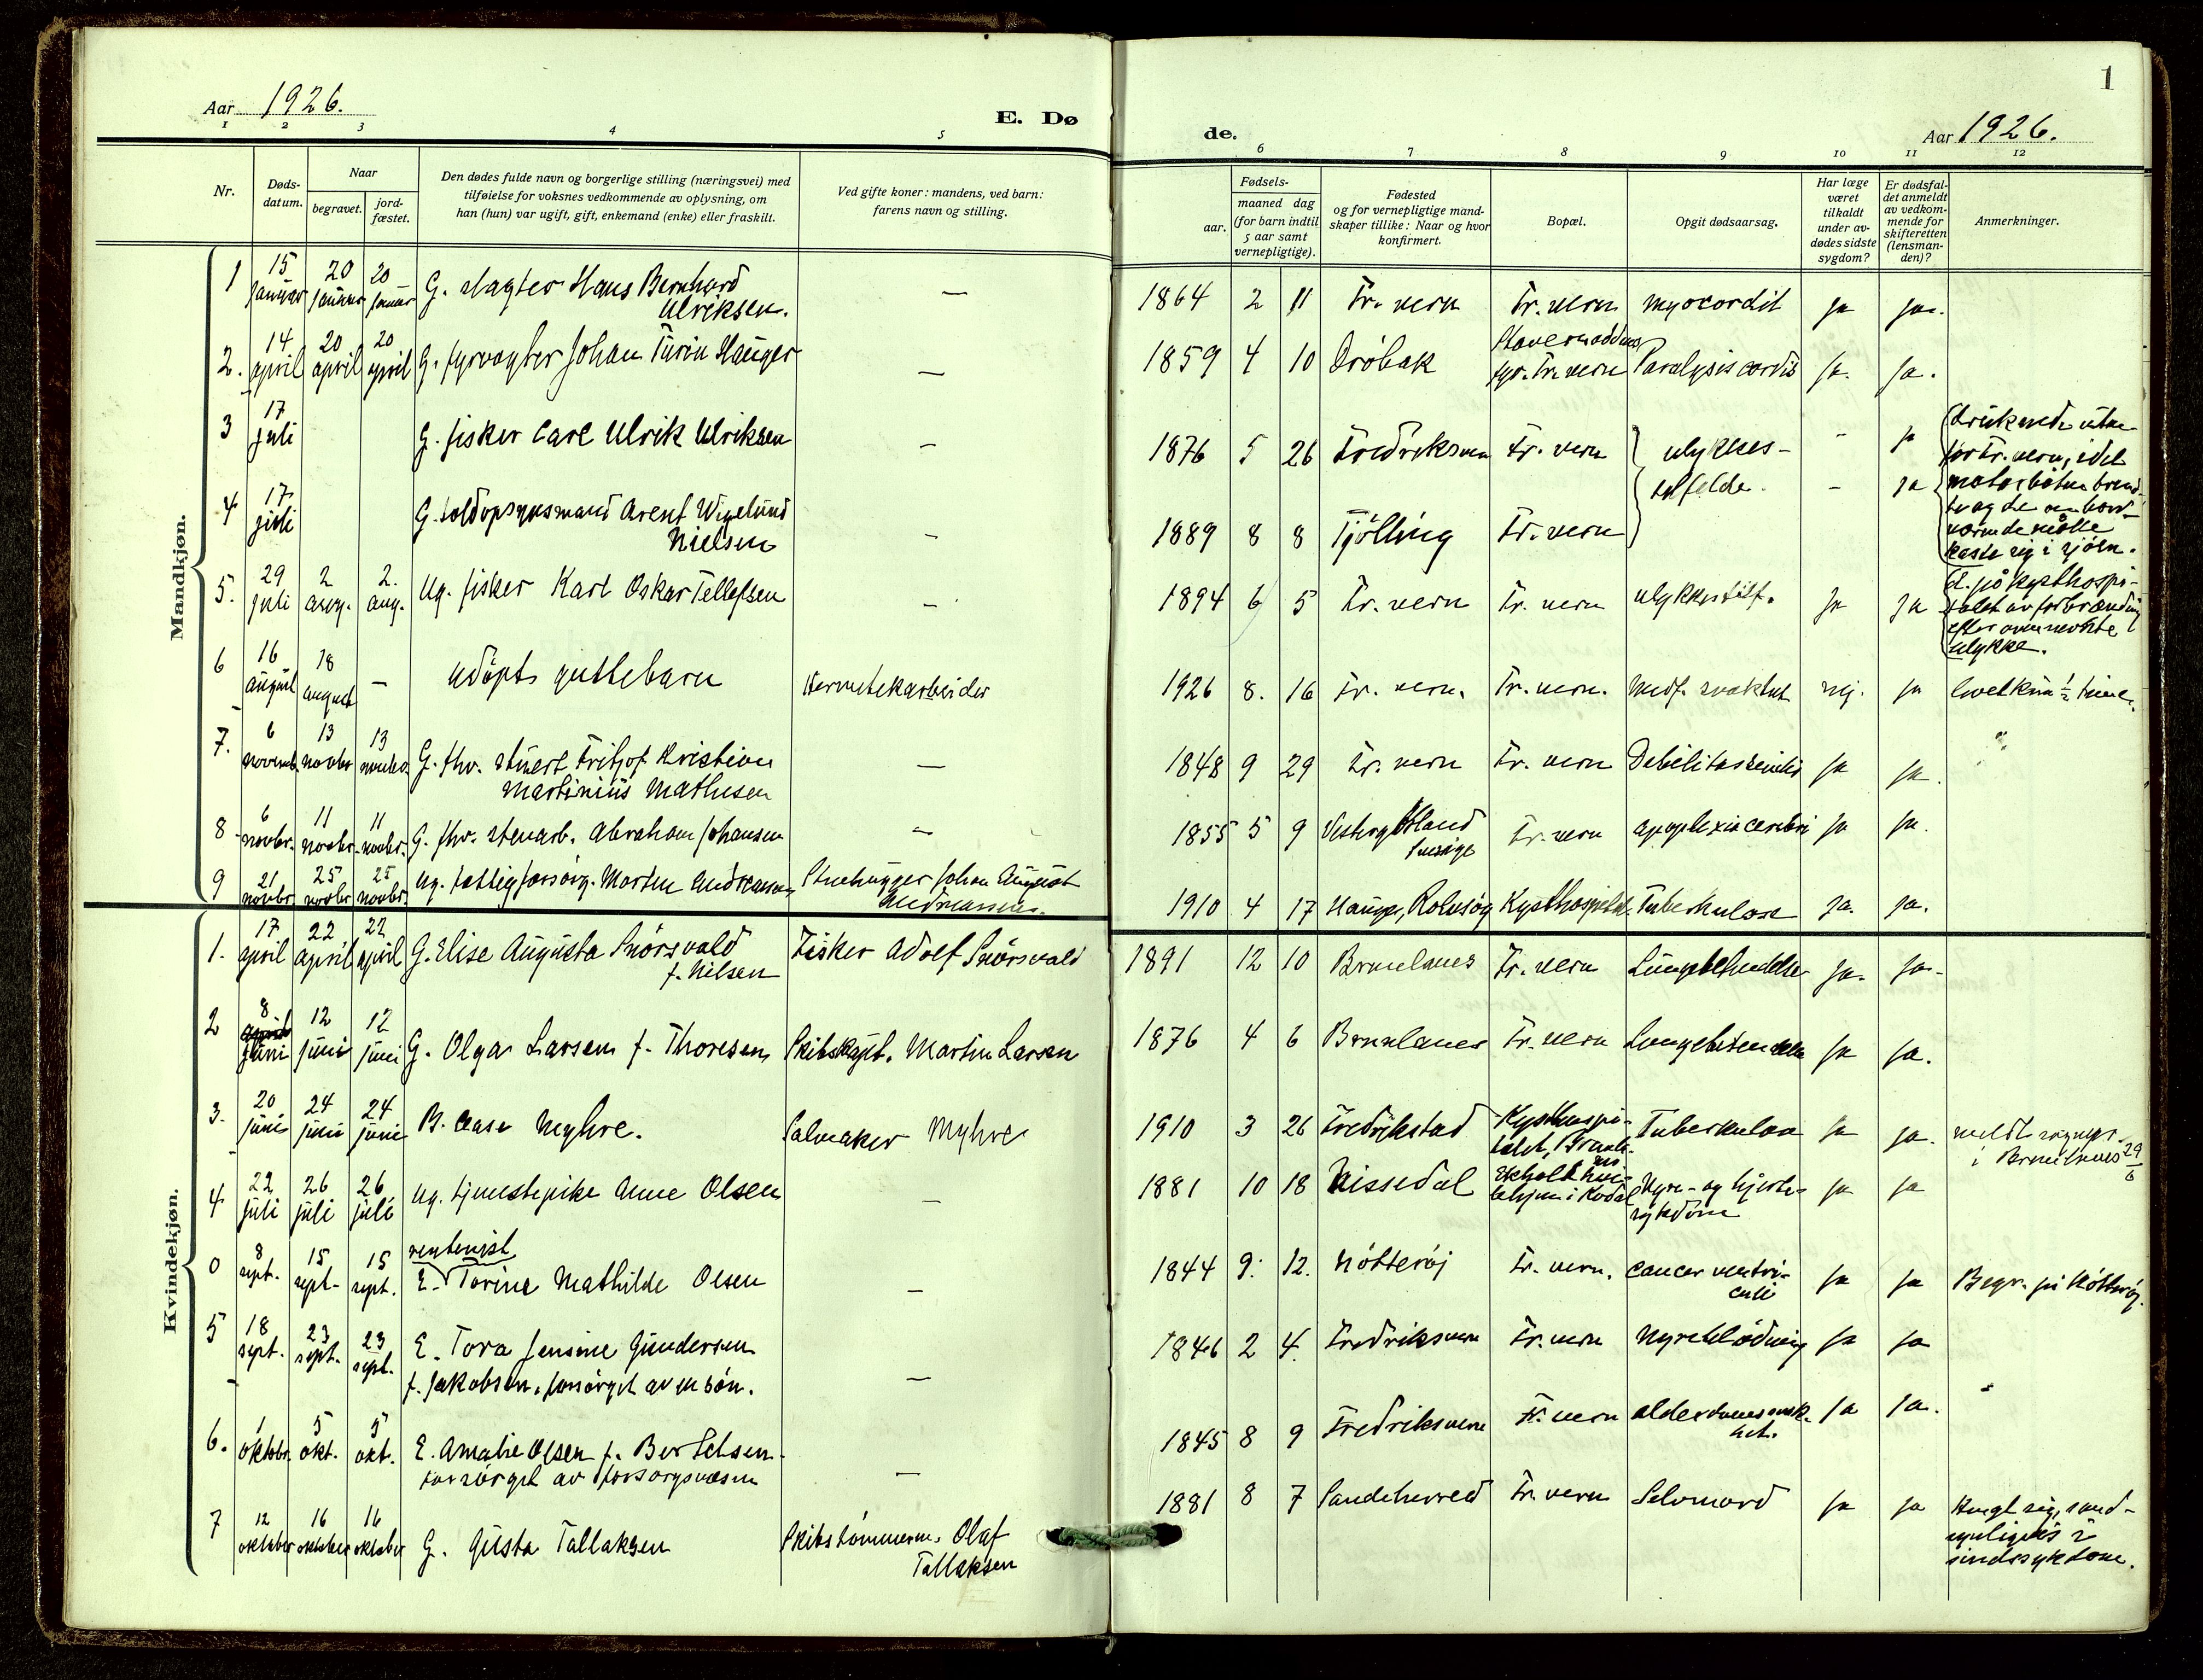 1
Aar 1926.
E. Dø
de.
Aar 1926.
1 2 3 4 5
6 7 8 9 10 11 12
Nr.
Døds-
datum.
Naar
begravet.
jord-
fæstet.
Den dødes fulde navn og borgerlige stilling (næringsvei) med
tilføielse for voksnes vedkommende av oplysning, om
han (hun) var ugift, gift, enkemand (enke) eller fraskilt.
Ved gifte koner: mandens, ved barn:
farens navn og stilling.
Fødsels-
aar.
maaned dag
(for barn indtil
5 aar samt
vernepligtige).
Fødested
og for vernepligtige mand-
skaper tillike: Naar og hvor
konfirmert.
Bopæl.
Opgit dødsaarsag.
Har læge
været
tilkaldt
under av-
dødes sidste
sygdom?
Er dødsfal-
det anmeldt
av vedkom-
mende for
skifteretten
(lensman-
den)?
Anmerkninger.
Mandkjøn.
1 15 januar 20 januar 20 januar G. slagter Hans Bernhard
Ulriksen. — 1864 2 11 Fr. vern Fr. vern myocardit ja ja.
2. 14 april 20 april 20 april G. fyrvogter Johan Turin Hauger — 1859 4 10 Drøbak Stavernsodden
fyr. Fr. vern Paralysis cordis ja. ja.
3 17 juli G. fisker Carl Ulrik Ulriksen — 1876 5 26 Fredriksvern Fr. vern ulykkes-
tilfelde. - ja druknede uten-
for Fr. vern, idet
motorbåten brend-
te og de ombord-
værende måtte
kaste sig i sjøen.
4 17 juli G. toldopsynsmand Arent Wigelund
Nielsen — 1889 8 8 Tjølling Fr. vern - ja
5. 29 juli 2 aug. 2. aug. Ug. fisker Karl Oskar Tellefsen — 1894 6 5 Fr. vern Fr. vern ulykkestilf. ja ja d. på Kysthospi-
talet av forbrænding
efter ovennevnte
ulykke.
6 16 august 18 august — udøpt guttebarn Hermetekarbeider 1926 8. 16 Fr. vern. Fr. vern. Medf. svakhet nej. ja levet kun ½ time.
7. 6 novemb. 13 novbr 13 novbr. G. fhv. stuert Fritjof Kristian
Martinius Mathisen — 1848 9 29 Fr. vern Fr. vern Debilitas senilis ja ja.
8 6 novbr. 11 novbr. 11 novbr. G. fhv. stenarb. Abraham Johansen — 1855 5 9 Vestergötland
Sverige Fr. vern apoplexia cerebri ja ja.
9 21 novbr 25 novbr 25 novbr. ug. fattigforsørg. Morten Andreassen Stenhugger Johan August
Andreassen. 1910 4 17 Hauge, Rolvsøy Kysthospitalet Tuberkulose ja. ja.
Kvindekjøn.
1. 17 april 22 april 22 april G. Elise Augusta Snørsvald
f. Nilsen Fisker Adolf Snørsvald 1891 12 10 Brunlanes Fr. vern Lungebetendelse ja. ja.
2 8 juni 12 juni 12 juni G. Olga Larsen f. Thoresen Skibskapt. Martin Larsen 1876 4 6 Brunlanes Fr. vern Lungebetendelse ja ja.
3. 20 juni 24 juni 24 juni B. Aase Myhre. Salmaker Myhre 1910 3 26 Fredrikstad Kysthospi-
talet, Brunla-
nes Tuberkulose ja ja. meldt sognepr.
i Brunlanes 29/6
4 22 juli 26 juli 26 juli ug. tjenestepike Anne Olsen — 1881 10 18 Nissedal Ekholt hvi-
lehjem i Kodal Nyre- og hjerte-
sykdom ja ja
0 8 sept. 15 sept. 15 sept. rentenist
E. Torine Mathilde Olsen — 1844 9. 12. Nøtterøj Fr. vern. Cancer ventri-
culi ja ja Begr. på Nøtterøj.
5 18 sept. 23 sept. 23 sept. E. Tora Jensine Gundersen
f. Jakobsen. forsørget av en søn. — 1846 2 4. Fredriksvern Fr. vern Nyreblødning ja ja
6. 1 oktobr. 5 okt. 5 okt. E. Amalie Olsen f. Bertelsen
forsørget av forsorgsvæsen — 1845 8 9 Fredriksvern Fr. vern alderdomssvak-
het. ja ja.
7 12 oktober 16 oktober 16 oktober G. Gusta Tallaksen Skibstømmerm. Olaf
Tallaksen 1881 8 7 Sandeherred Fr. vern Selvmord ja ja Hengt sig, sand-
synligvis i
sindssykdom.